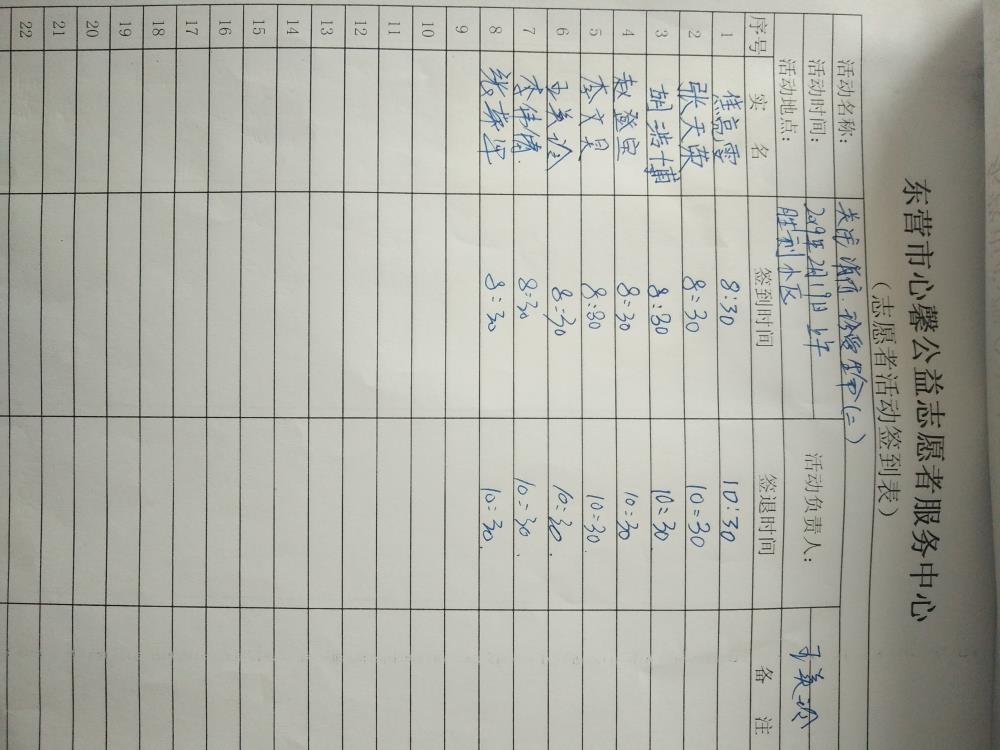 东营市心馨公益志愿者服务中心
（志愿者活动签到表）
活动名称： 关注消防、珍爱生命（二）
活动时间： 2019年2月19日 上午 活动负责人： 王美玲
活动地点： 胜利小区
序号 实 名 签到时间 签退时间 备 注
1 焦亮雪 8:30 10:30
2 张天荣 8:30 10:30
3 胡浩博 8:30 10:30
4 赵登宝 8:30 10:30
5 李文昊 8:30 10:30
6 王美玲 8:30 10:30
7 李伟倩 8:30 10:30
8 8:30 10:30
9
10
11
12
13
14
15
16
17
18
19
20
21
22